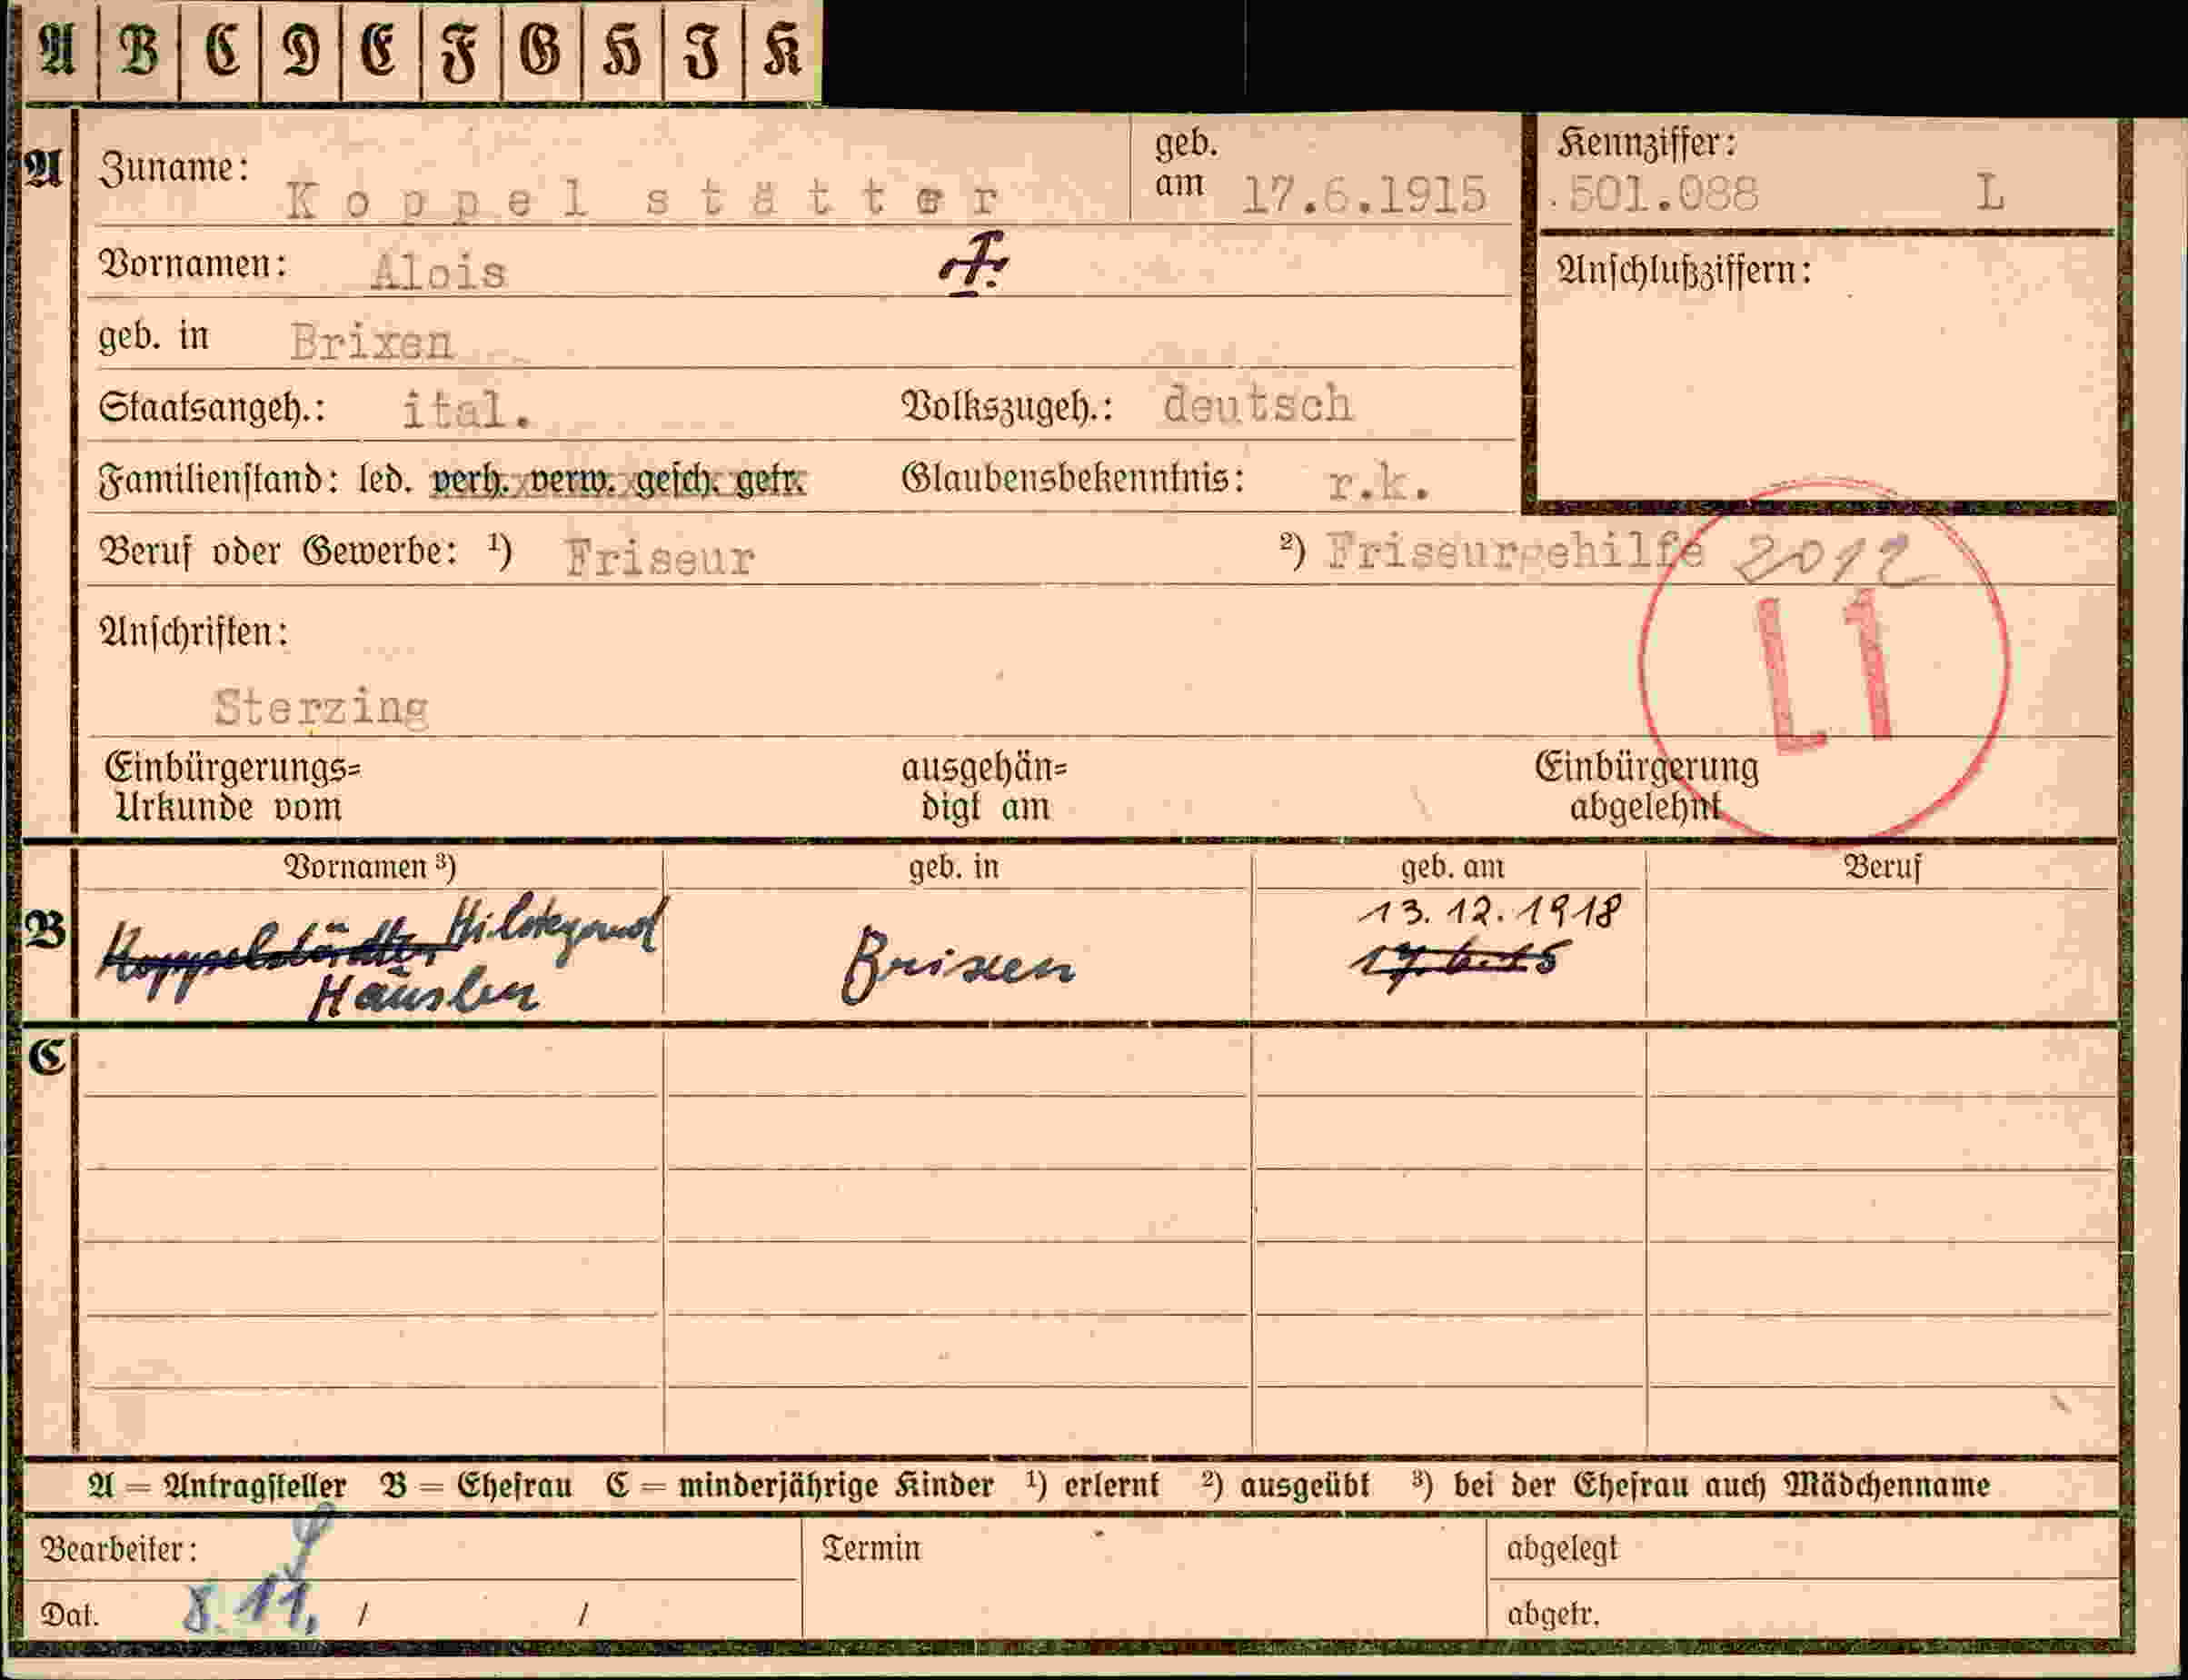 A B C D E F G H I K
A Zuname: Koppelstätter geb. am 17.6.1915 Kennziffer: 501.088 L
Vornamen: Alois Anschlußziffern:
geb. in Brixen
Staatsangeh.: ital. Volkszugeh.: deutsch
Familienstand: led. verh. verw. gesch. getr. Glaubensbekenntnis: r.k.
Beruf oder Gewerbe: ¹) Friseur ²) Friseurgehilfe 2012
L1
Anschriften:
Sterzing
Einbürgerungs= ausgehän= Einbürgerung
Urkunde vom digt am abgelehnt
Vornamen ³) geb. in geb. am Beruf
13.12.1918
B Koppelstädter Hildegard Brixen 17.6.15
Häusler
C
A = Antragsteller B = Ehefrau C = minderjährige Kinder ¹) erlernt ²) ausgeübt ³) bei der Ehefrau auch Mädchenname
Bearbeiter: Termin abgelegt
Dat. 8.11. / / abgetr.